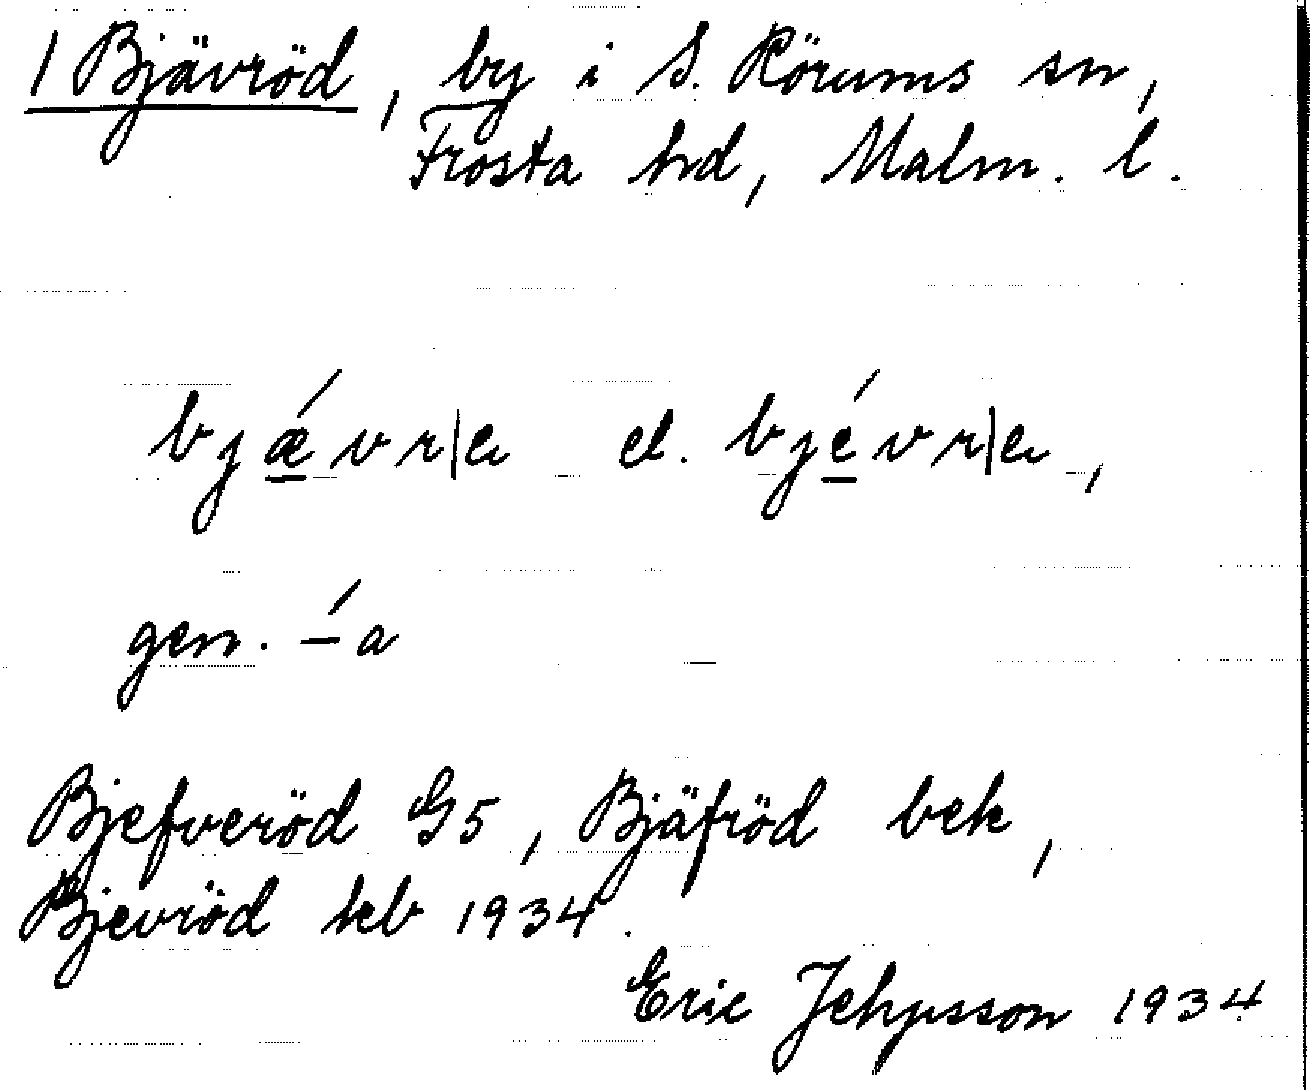 1 Bjävröd, by i S. Rörums sn,
Frosta hd, Malm. l.
bjǽvr|e el. bjévr|e,
gen. –́a
Bjefveröd G5, Bjäfröd bek,
Bjevröd kb 1934.
Eric Jehpsson 1934